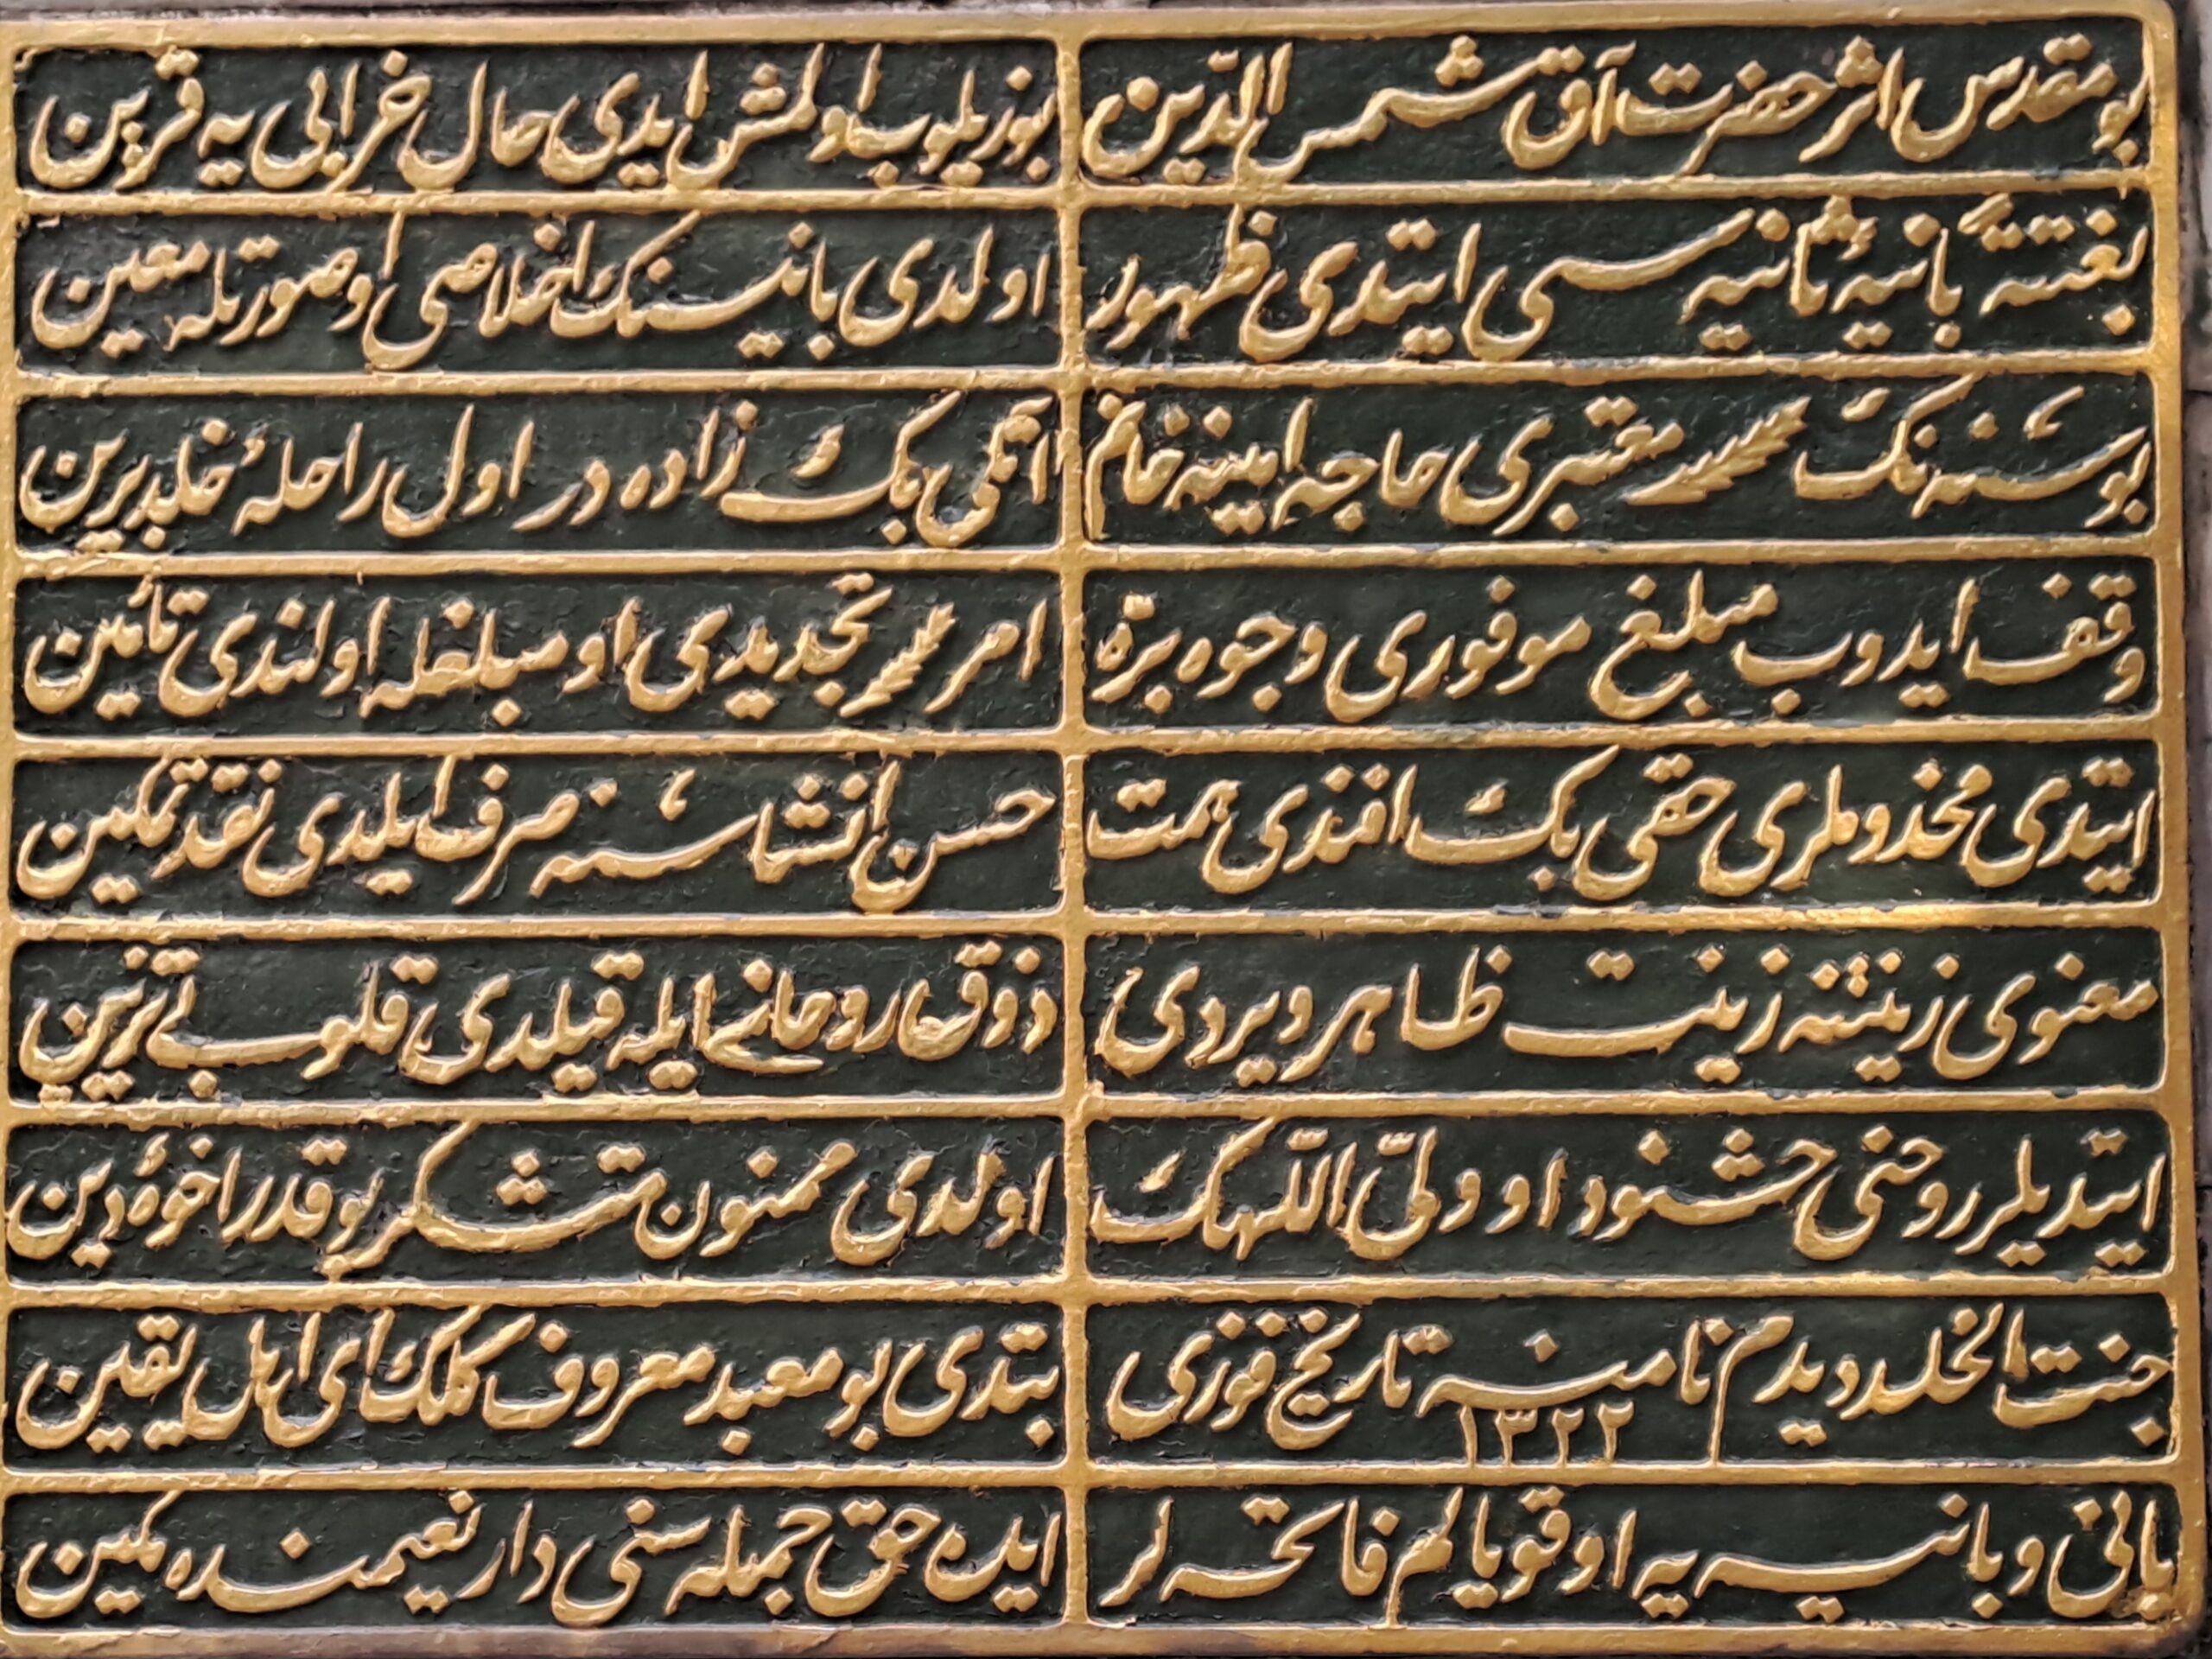 بو مقدس اثر حضرت آق شمس الدّین
بوزیلوب اولمش ایدی حال خرابی یه قرین
بغتةً بانیۀ ثانیه سی ایتدی ظهور
اولدی بانیسنك اخلاصی او صورتله معین
بوسنه نك معتبری حاجه امینه خانم
آتمی بك زاده در اول راحلۀ خلد برین
وقف ایدوب مبلغ موفوری وجوه برّه
امر تجدیدی او مبلغله اولندی تأمین
ایتدی مخدوملری حقی بك افندی همت
حسن انشاسنه صرف ایلدی نقد تمکین
معنوی زینتنه زینت ظاهر ویردی
ذوق روحانی ایله قیلدی قلوبی تزیین
ایتدیلر روحنی خشنود او ولیّ اللهك
اولدی ممنون متشکر بو قدر اخوۀ دین
جنت الخلد دیدم نامنه تاریخ فوزی
١٣٢٢
بتدی بو معبد معروف کلك ای اهل یقین
بانی و بانیسیه یه اوقویالم فاتحه لر
ایده حق جمله سنی دار نعیمنده مکین